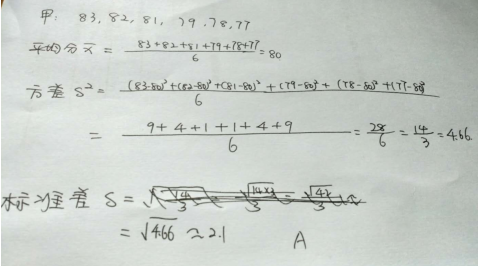 甲: 83, 82, 81, 79, 78, 77
平均分 x̄ = (83+82+81+79+78+77)/6 = 80
方差 S² = ((83-80)²+(82-80)²+(81-80)²+(79-80)²+(78-80)²+(77-80)²)/6
= (9+4+1+1+4+9)/6 = 28/6 = 14/3 = 4.66
标准差 S =
= √4.66 ≈ 2.1 A